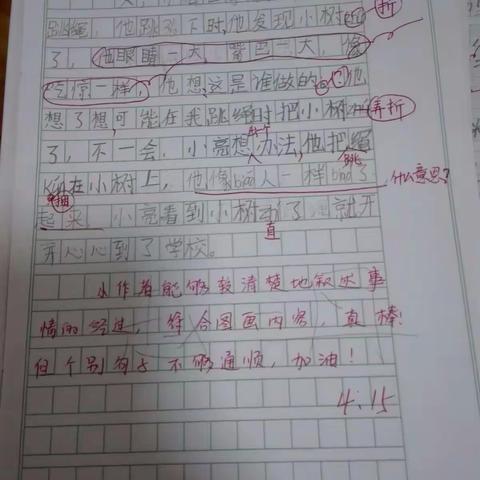 跳绳，他跳了下时，他发现小树
折
了，他眼睛一大，嘴巴一大，像
吃惊一样，他想，这是谁做的？他
想了想，可能在我跳绳时把小树弄折
了，不一会，小亮想办法，他把绳
跳
在小树上，他像bǎng人一样bǎng了 什么意思？
起来，小亮看到小树直了，就开
开心心到了学校。
小作者能够较清楚地叙述事
情的经过，符合图画内容，真棒！
但个别句子不够通顺，加油！
4.15